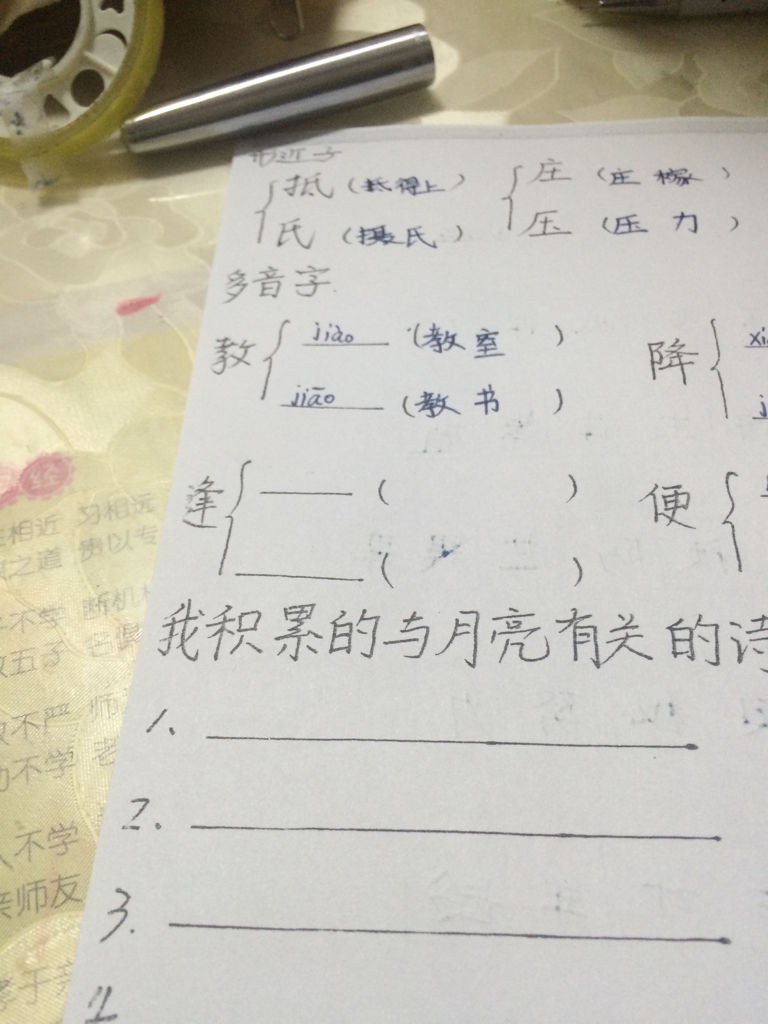 形近字
抵（抵得上） 庄（庄稼）
氏（摄氏） 压（压力）
多音字
教 jiào（教室） 降
jiāo（教书）
逢 （ ） 便
（ ）
我积累的与月亮有关的诗
1.
2.
3.
经
相近 习相远
之道 贵以专
不学 断机
五子 名俱
不严 师
不学 老
不学
亲师友